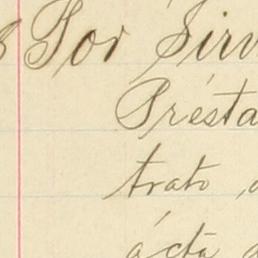 Por Sirv
Présta
trato
ácta